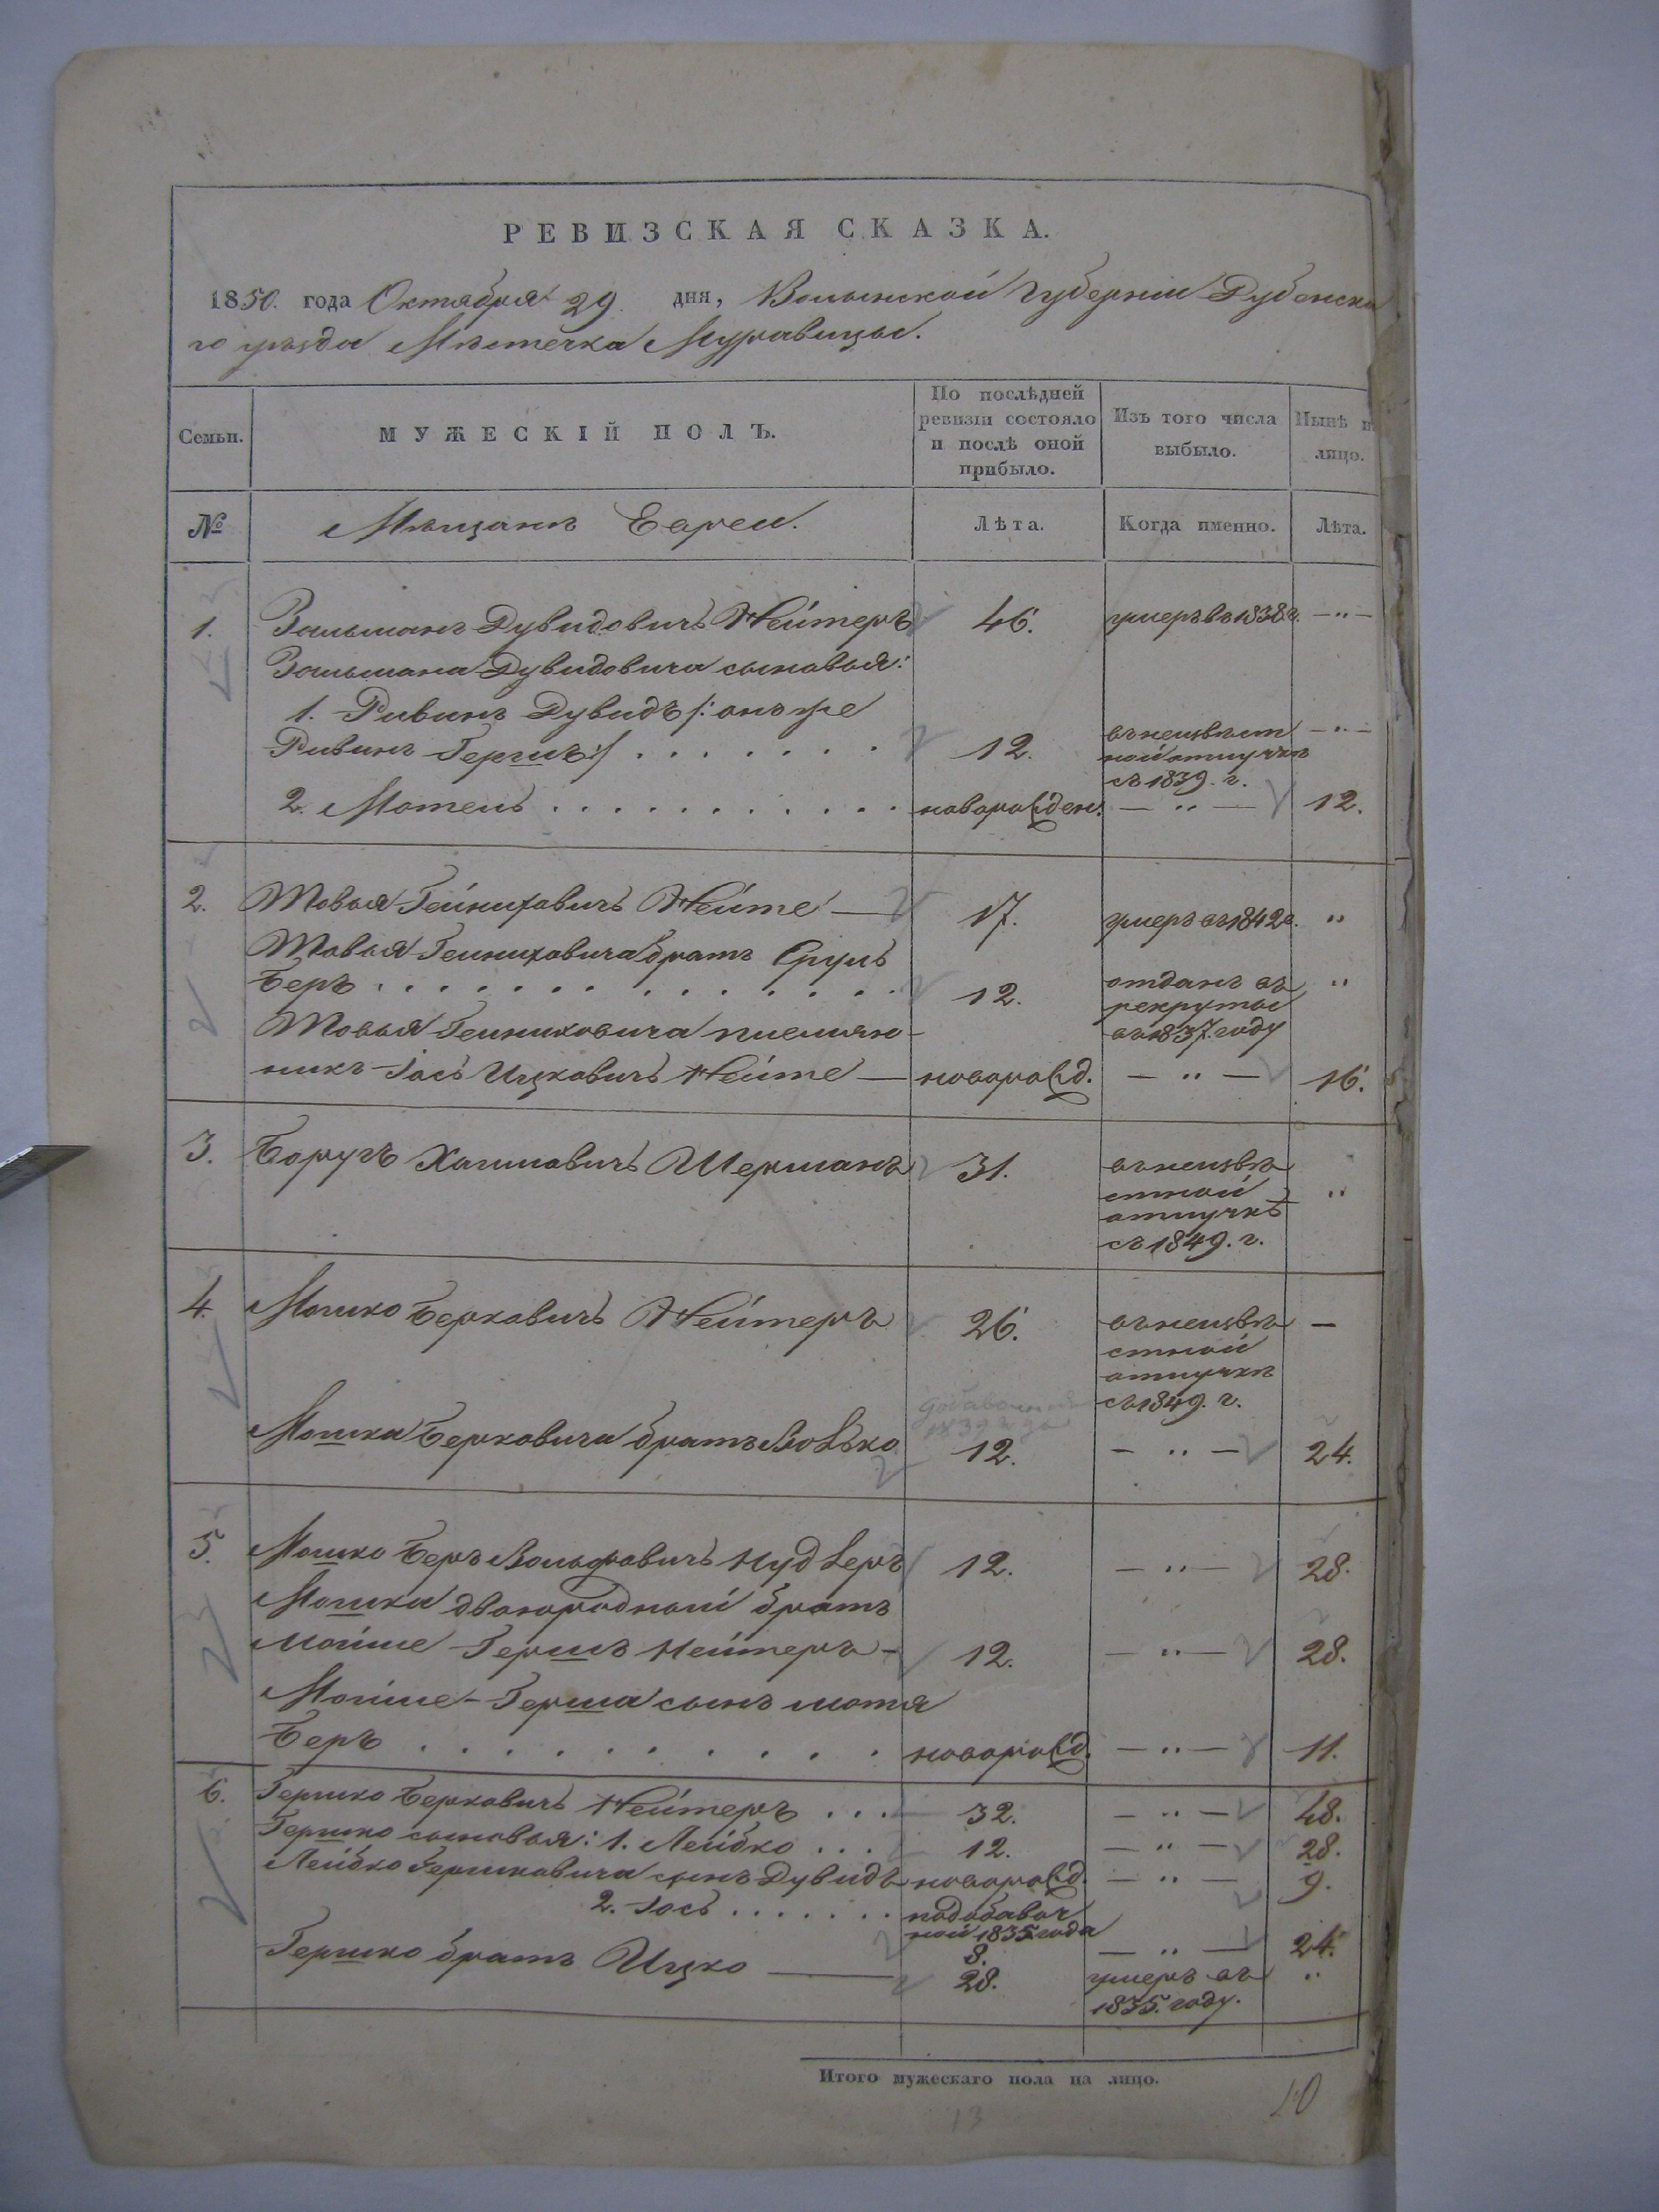 РЕВИЗСКАЯ СКАЗКА.
1850. года Октября 29. дня, Волынской Губернии Дубенска
го уѣзда Мѣстечка Муравицы.
Семьи.
МУЖЕСКІЙ ПОЛЪ.
По послѣдней
ревизіи состояло
и послѣ оной
прибыло.
Изъ того числа
выбыло.
Нынѣ н
лицо.
№
Мѣщанъ Евреи.
Лѣта.
Когда именно.
Лѣта.
1. Зельманъ Дувидовичъ Нейтеръ 46. умеръ въ 1838 г. —„—
Зельмана Дувидовича сыновья:
1. Ривинъ Дувидъ /: онъ же
Ривинъ Гершъ :/ . . . . . . . 12. въ неизвѣст —„—
ной отлучкѣ
съ 1839. г.
2. Мотель . . . . . . . . . . . новорожден. — „ — 12.
2. Товья Гейниховичъ Нейте — 17. умеръ въ 1842 г. „
Товья Гениховича братъ Сруль
Беръ . . . . . . . . . . . . . 12. отданъ въ „
рекруты
въ 1837. году
Товья Гениховича племян-
никъ Іось Ицковичъ Нейте — новорожд. — „ — 16.
3. Борухъ Хаимовичъ Шерманъ 31. въ неизвѣ „
стной
отлучкѣ
съ 1849. г.
4. Мошко Берковичъ Нейтеръ 26. въ неизвѣ —
стной
отлучкѣ
съ 1849. г.
Мошка Берковича братъ Волько 12. — „ — 24.
5. Мошко Беръ Вольфовичъ 12. — „ — 28.
Мошка двоюродный братъ
Мойше Гершъ Нейтеръ — 12. — „ — 28.
Мойше-Герша сынъ мотя
Беръ . . . . . . . . . . . новорожд. — „ — 11.
6. Гершко Берковичъ Нейтеръ . . . 32. — „ — 48.
Гершко сыновья: 1. Лейбко . . . 12. — „ — 28.
Лейбко Гершковича сынъ Дувидъ новорожд. — „ — 9.
2. Іось . . . . . . . по добавоч
ной 1835 года
8. — „ — 24.
Гершко братъ Ицко —— 28. умеръ въ „
1835. году.
Итого мужескаго пола на лицо.
10
13